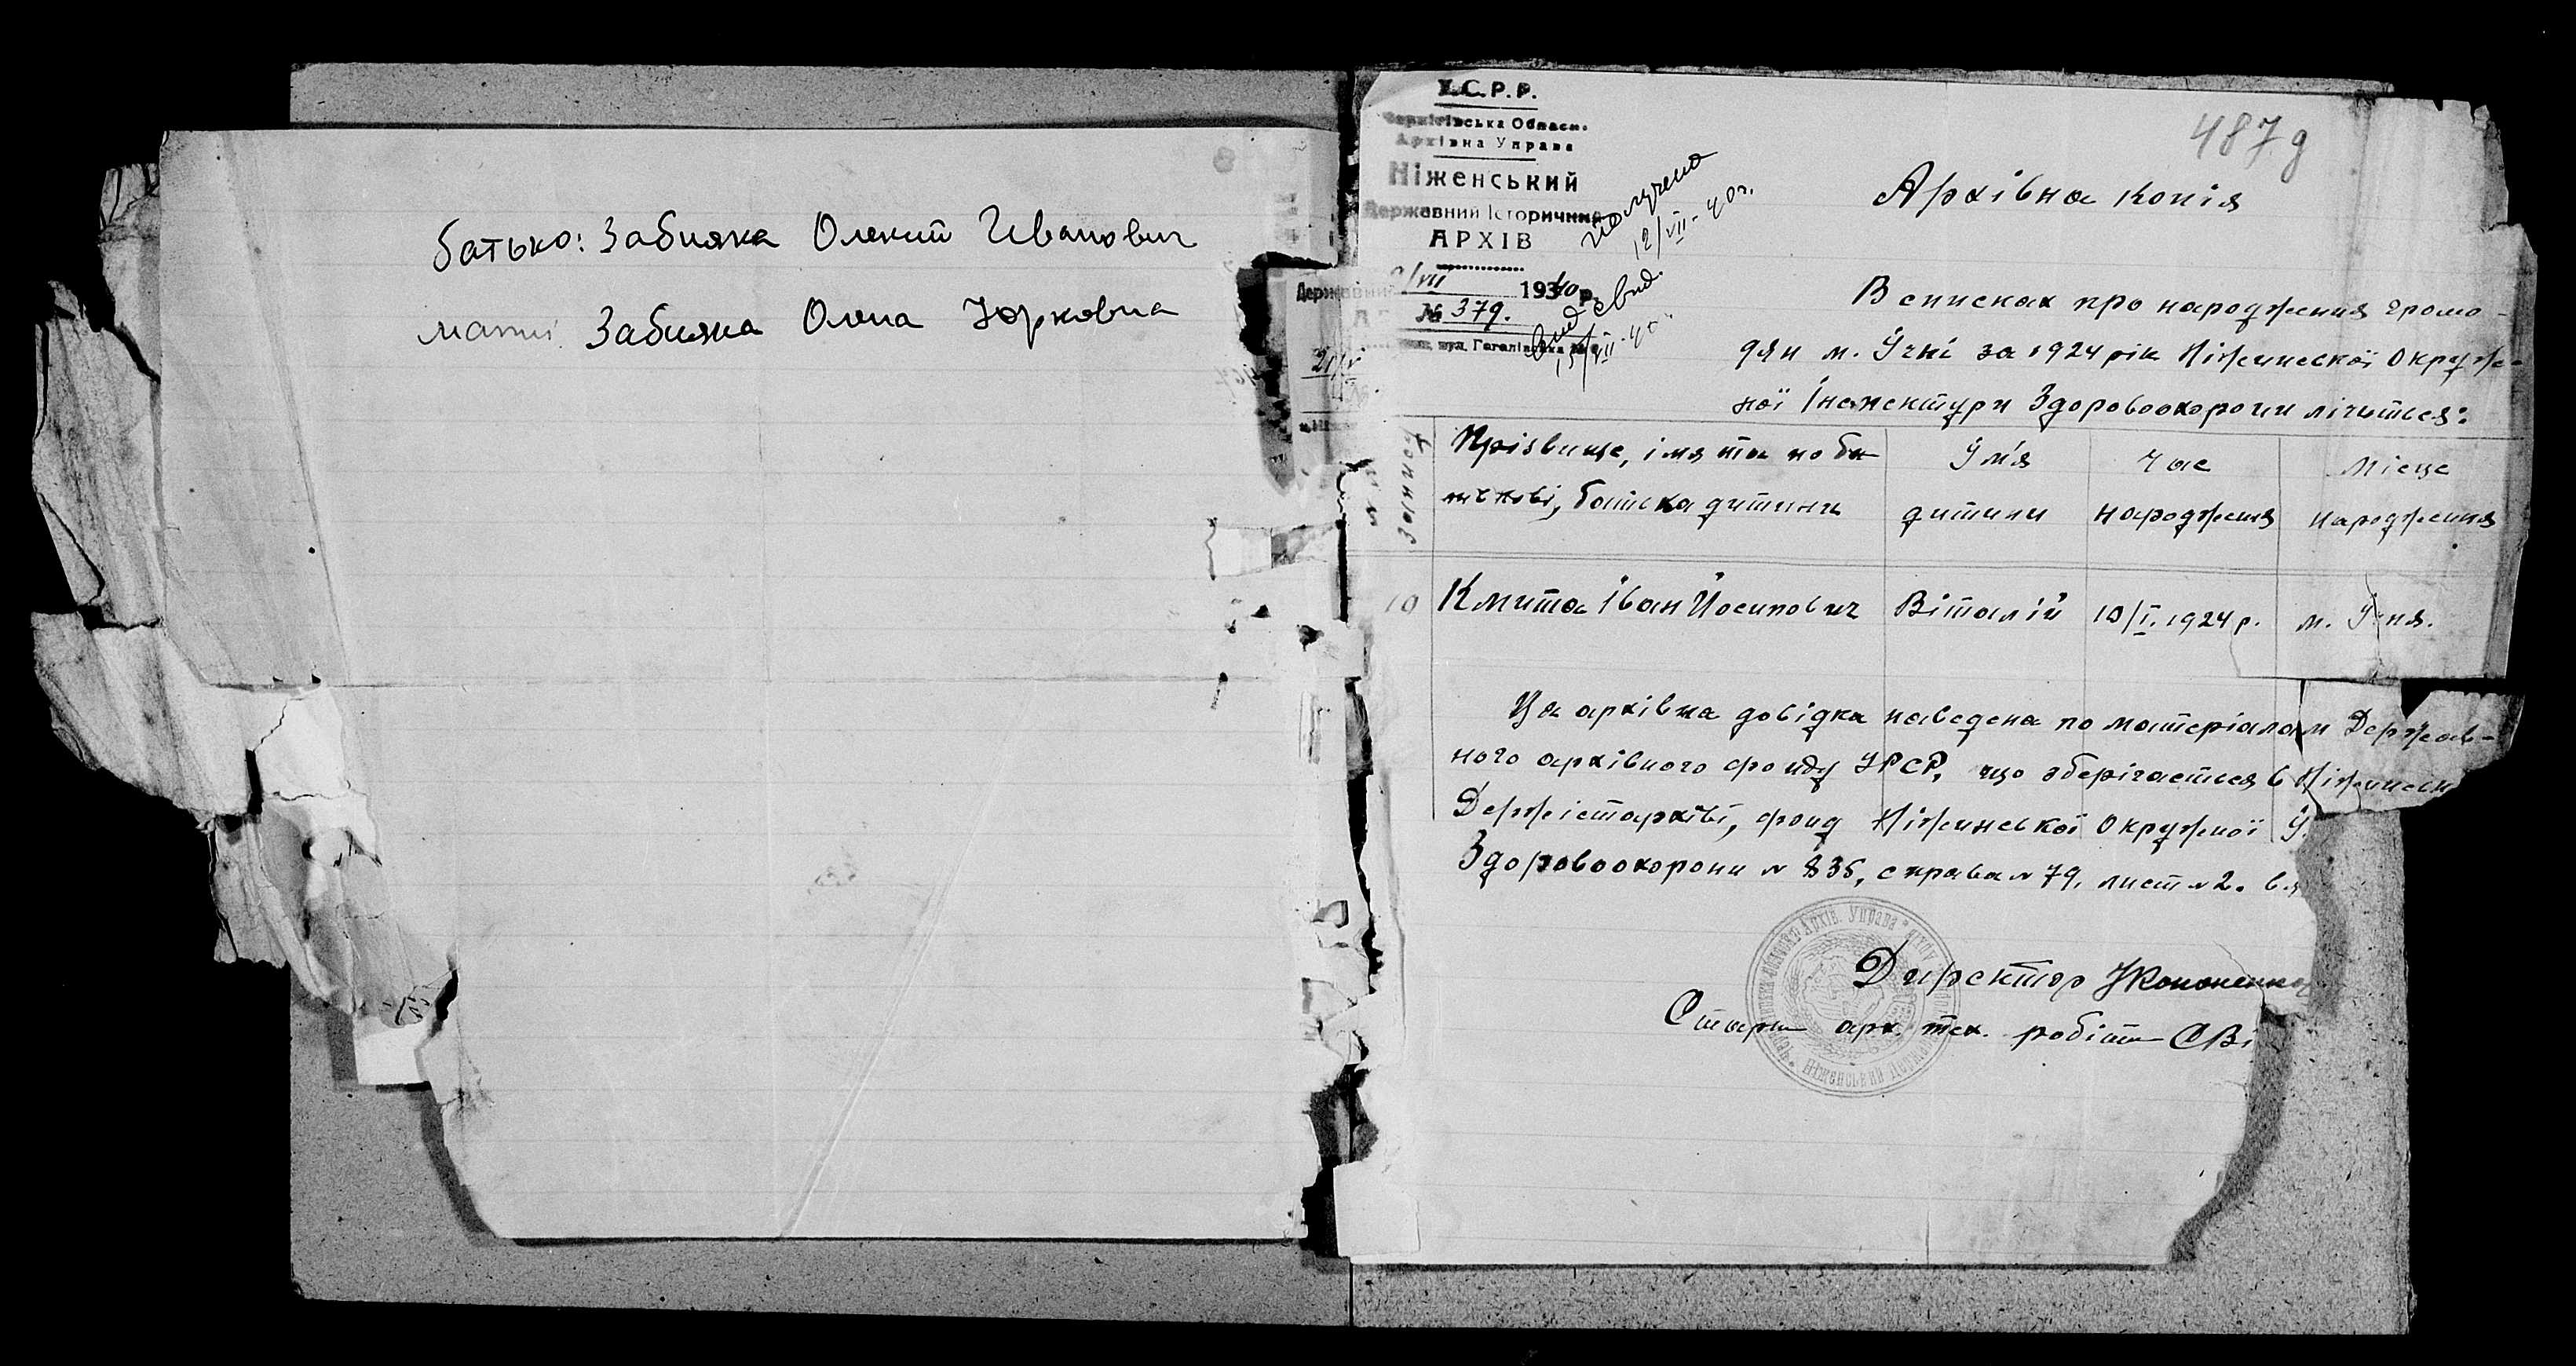 батько: Забияка Олексій Иванович
мати: Забияка Олена Юрковна
У.С.Р.Р.
Чернігівська Обласн.
Архівна Управа
Ніженський
Державний Історичний
АРХІВ
/VII 1940 р.
№ 379.
вул. Гоголівська №
получено
12/VII-40 г.
Вид. свид.
15/VII-40 г.
487 д
Архівна копія
В списках про народження грома-
дян м. Ічні за 1924 рік Ніжинської Окруж-
ної Інспектури Здоровоохорони лічиться:
Прізвище, імя та по ба-
тькові, батька дитини
Ім'я
дитини
Час
народження
Місце
народження
10 Кмита Іван Йосипович Віталій 10/I. 1924 р. м. Ічня.
Ця архівна довідка наведена по матеріалам Держав-
ного архівного фонду УРСР, що зберігається в Ніжинськ
Держістархіві, фонд Ніжинської Окружної І.
Здоровоохорони № 835, справа № 79, лист № 2.
Директор Кононенко
Старш арх. тех. робітн